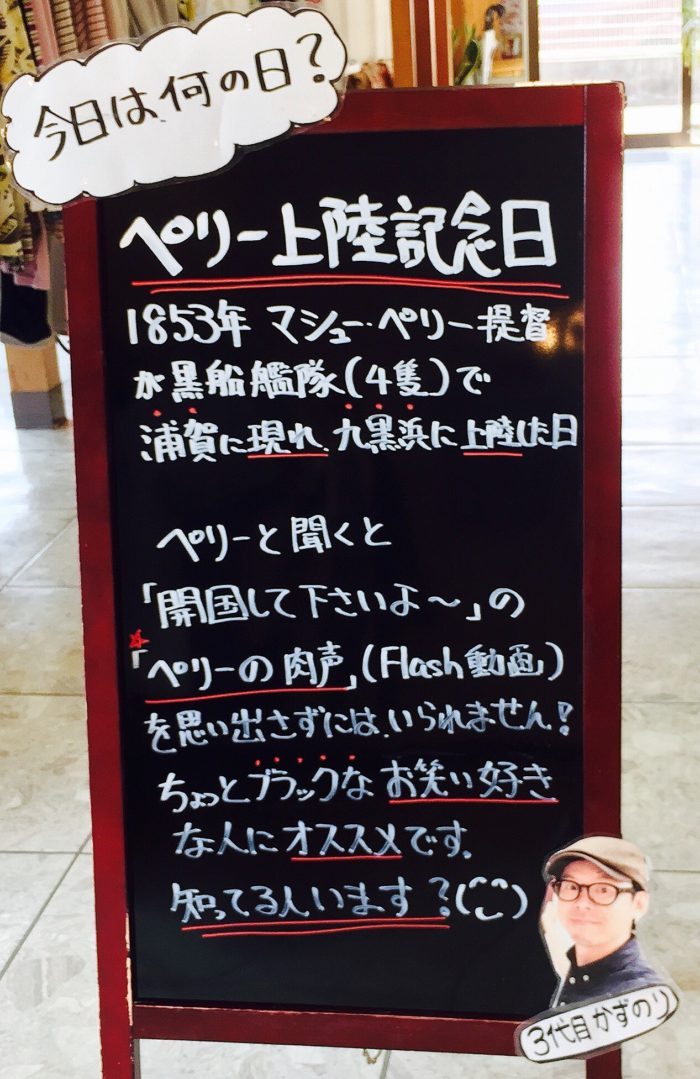 今日は何の日?
ペリー上陸記念日
1853年 マシュー・ペリー提督
が黒船艦隊(4隻)で
浦賀に現れ、九黒浜に上陸した日
ペリーと聞くと
「開国して下さいよ〜」の
「ペリーの肉声」(Flash動画)
を思い出さずには、いられません!
ちょっとブラックな お笑い好き
な人にオススメです。
知ってる人います?(^^)
3代目かずのり